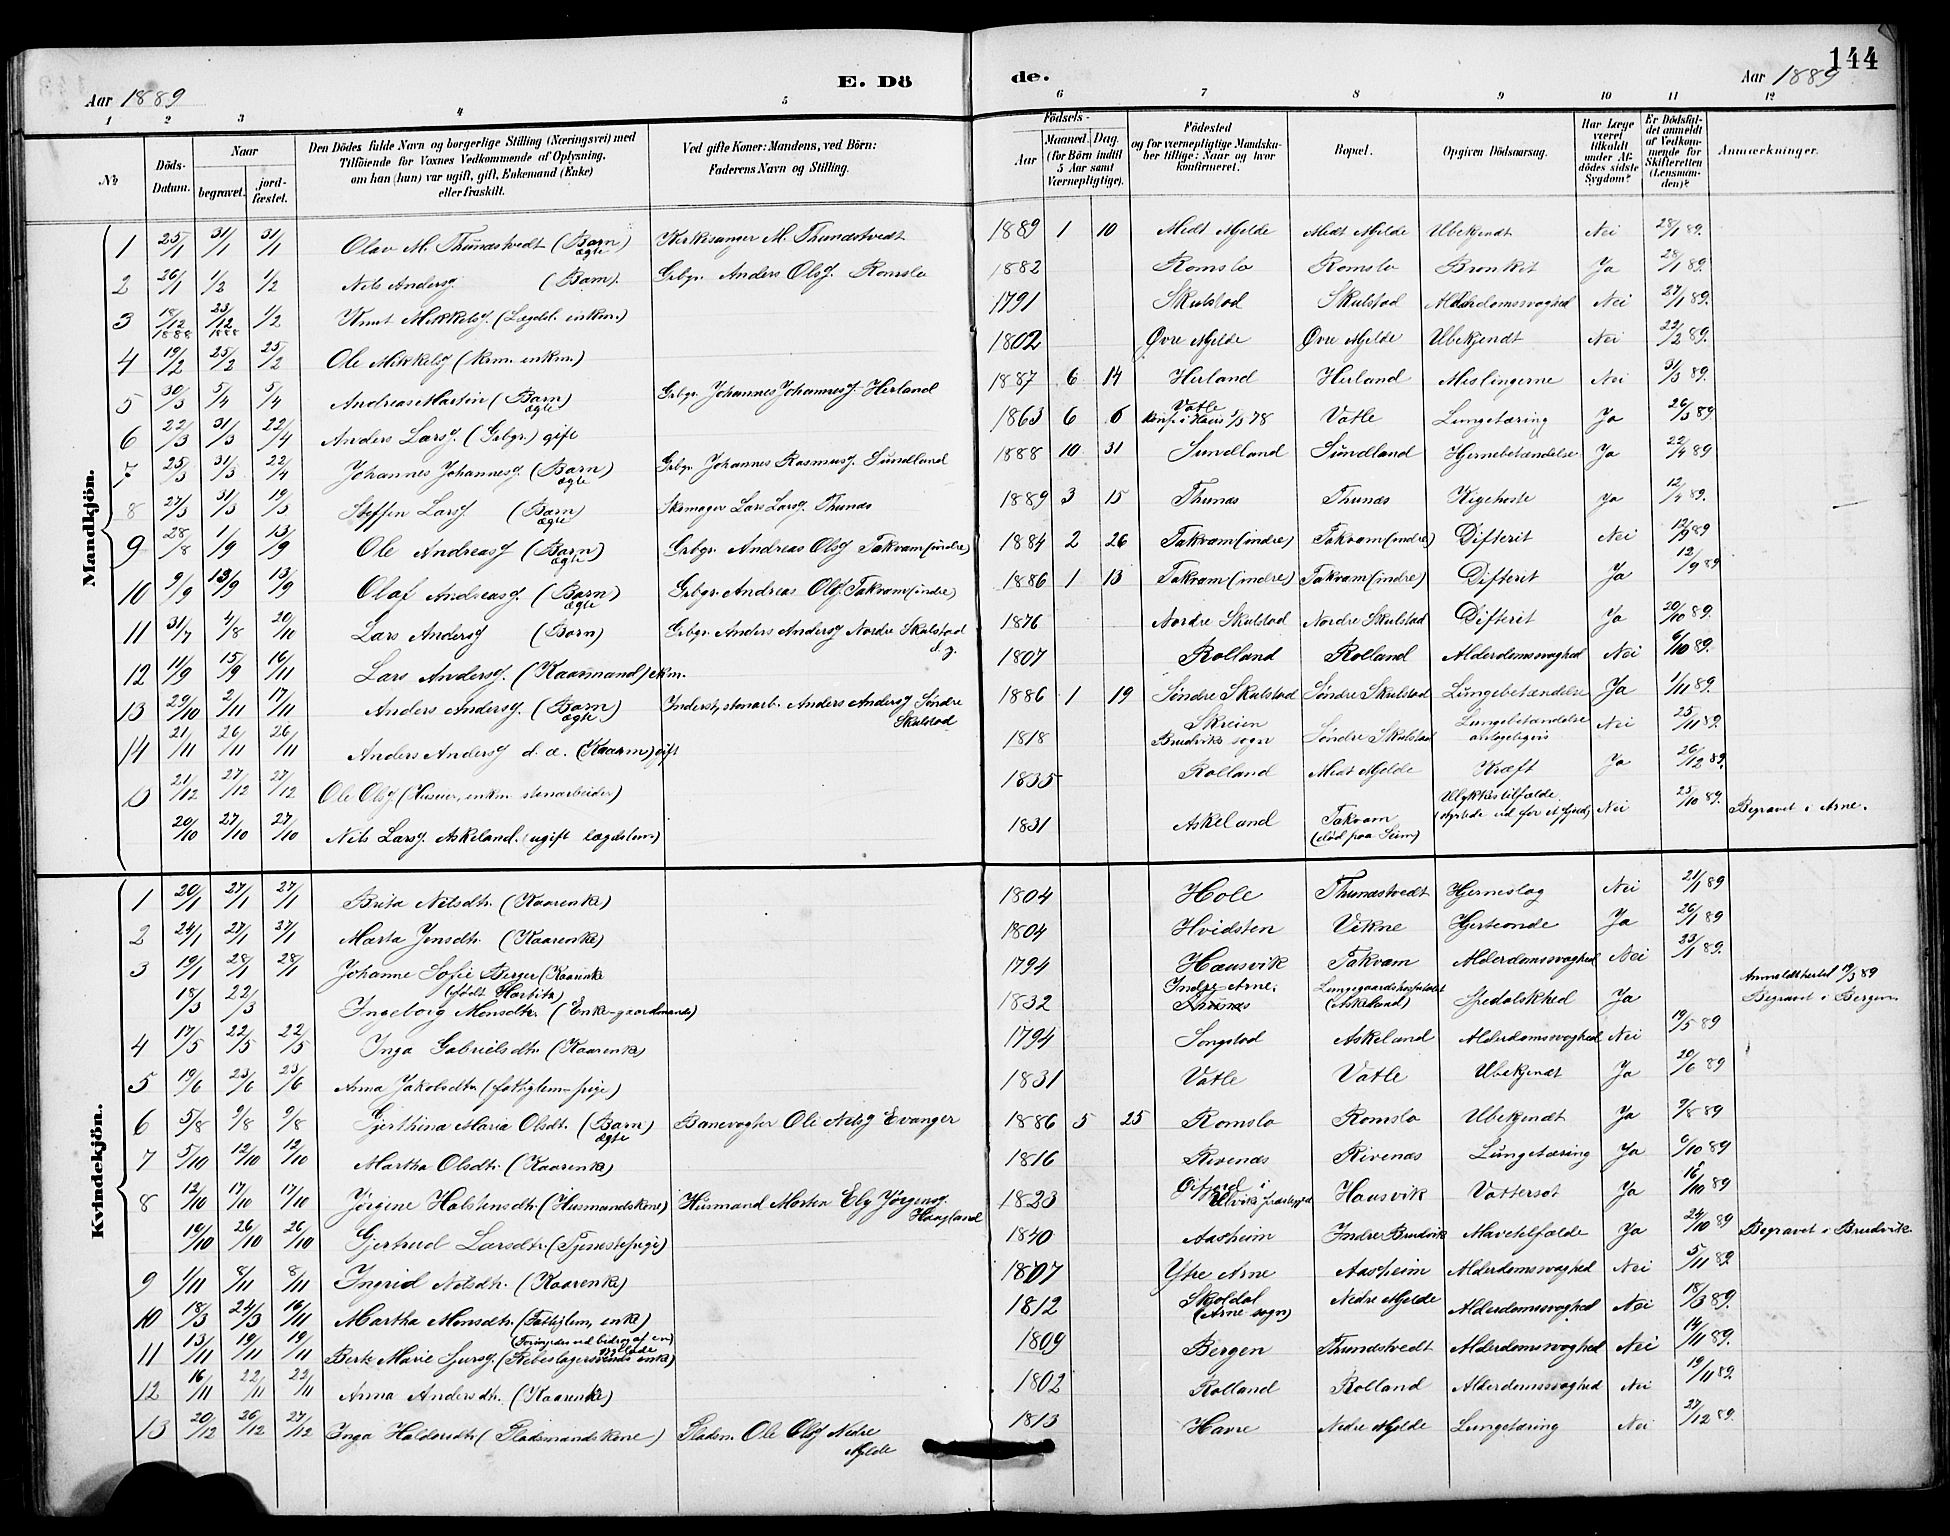 144
E. Döde.
Aar 1889
Aar 1889
1 2 3 4 5 6 7 8 9 10 11 12
№
Döds-Datum.
Naar
begravet.
jord-fæstet.
Den Dödes fulde Navn og borgerlige Stilling (Næringsvei) med
Tilföiende for Voxnes Vedkommende af Oplysning,
om han (hun) var ugift, gift, Enkemand (Enke)
eller fraskilt.
Ved gifte Koner: Mandens, ved Börn:
Faderens Navn og Stilling.
Födsels-
Aar
Maaned. Dag.
(for Börn indtil
5 Aar samt
Værnepligtige).
Födested
og for værnepligtige Mandska-
ber tillige: Naar og hvor
konfirmeret.
Bopæl.
Opgiven Dödsaarsag.
Har Læge
været
tilkaldt
under Af-
dödes sidste
Sygdom?
Er Dödsfal-
det anmeldt
af Vedkom-
mende for
Skifteretten
(Lensman-
den)?
Anmærkninger.
Mandkjön.
1 25/1 31/1 31/1 Olav M. Thunæstvedt (Barn) ægte Kirkesanger M. Thunæstvedt 1889 1 10 Midt Mjelde Midt Mjelde Ubekjendt Nei 28/1 89.
2 26/1 1/2 1/2 Nils Andersg. (Barn). Grbgr. Anders Olsg. Romslo 1882 Romslo Romslo Bronkit Ja 28/1 89.
3 18/12 1888 23/12 1888 1/2 Knut Mikkelsg. (Lægdsl. enkm.) 1791 Skulstad Skulstad Alderdomssvaghed Nei 27/1 89.
4 19/2 25/2 25/2 Ole Mikkelsg (krm. enkm.) 1802 Øvre Mjelde Øvre Mjelde Ubekjendt Nei 22/2 89.
5 30/3 5/4 5/4 Andreas Martin (Barn) ægte Grbgr. Johannes Johannesg. Herland 1887 6 14 Herland Herland Meslingerne Nei 31/3 89.
6 22/3 31/3 22/4 Anders Larsg. (Grbgr.) gift 1863 6 6 Vatle Konf. i Haus 78 Vatle Lungetæring Ja 26/3 89.
7 25/3 31/3 22/4 Johannes Johannesg. (Barn) ægte Grbgr. Johannes Rasmusg. Sundland 1888 10 31 Sundland Sundland Hjernebetændelse Ja 22/4 89.
8 27/3 31/3 19/3 Steffen Larsg. (Barn) ægte Skomager Lars Larsg. Thunæs 1889 3 15 Thunæs Thunæs Kigehoste Ja 12/4 89.
9 28/8 1/9 13/9 Ole Andreasg (Barn) ægte Grbgr. Andreas Olsg Takvam (indre) 1884 2 26 Takvam (indre) Takvam (indre) Difterit Nei 12/9 89
10 9/9 13/9 13/9 Olaf Andreasg. (Barn) ægte Grbgr. Andreas Olsg. Takvam (indre) 1886 1 13 Takvam (indre) Takvam (indre) Difterit Ja 12/9 89
11 31/7 4/8 20/10 Lars Andersg (Barn) Grbgr. Anders Andersg Nordre Skulstad d. y. 1876 Nordre Skulstad Nordre Skulstad Difterit Ja 20/10 89.
12 11/9 15/9 16/11 Lars Andersg. (Kaarmand) ekm. 1807 Rolland Rolland Alderdomssvaghed Nei 6/10 89.
13 29/10 2/11 17/11 Anders Andersg. (Barn) ægte Inderst, stenarb. Anders Andersg Søndre Skulstad 1886 1 19 Søndre Skulstad Søndre Skulstad Lungebetændelse Ja 1/11 89.
14 21/11 26/11 26/11 Anders Andersg d. æ. (Kaarm) gift 1818 Skreien Brudviks sogn Søndre Skulstad Lungebetændelse antageligvis Nei 25/11 89.
15 21/12 27/12 27/12 Ole Olsg (Husuer, enkm. stenarbeider) 1835 Rolland Midt Mjelde Kræft Ja 26/12 89.
20/10 27/10 27/10 Nils Larsg. Askeland. (ugift lægdslem) 1831 Askeland Takvam (død paa Seim) Ulykkestilfælde (styrtede ud for et fjeld) Nei 25/10 89. Begravet i Arne.
Kvindekjön.
1 20/1 27/1 27/1 Brita Nilsdtr. (Kaarenke) 1804 Hole Thunæstvedt Hjerneslag Nei 21/1 89
2 24/1 27/1 27/1 Marta Jensdtr. (Kaarenke) 1804 Hvidsten Vikne Hjerteonde Ja 26/1 89
3 19/1 28/1 28/1 Johanne Sofie Berger (Kaarenke (født Hartvig) 1794 Hausvik Takvam Alderdomssvaghed Nei 23/1 89.
18/3 22/3 Ingeborg Monsdtr. (Enke-gaardmands) 1832 Indre-Arne, Thunæs Lungegaardshospitalet (Askeland) Spedalskhed Ja Anmeldt hertil 19/3 89 Begravet i Bergen
4 17/5 22/5 22/5 Inga Gabrielsdtr. (Kaarenke) 1794 Songstad Askeland Alderdomssvaghed Nei 19/5 89
5 19/6 23/6 23/6 Anna Jakobsdtr. (fattiglem-pige) 1831 Vatle Vatle Ubekjendt Ja 20/6 89
6 5/8 9/8 9/8 Gjerthina Maria Olsdt. (Barn) ægte Banevogter Ole Nilsg Evanger 1886 5 25 Romslo Romslo Ubekjendt Ja 9/8 89
7 5/10 12/10 12/10 Martha Olsdtr. (Kaarenke) 1816 Rivenæs Rivenæs Lungetæring Ja 6/10 89
8 12/10 17/10 17/10 Jørgine Halstensdtr. (Husmandskone) Husmand Morten Elg Jørgensg. Haagland 1823 i Ulviks præstegjeld Hausvik Vattersot Ja 16/10 89
19/10 26/10 26/10 Gjertrud Larsdtr. (Tjenestepige) 1840 Aasheim Indre Brudvik Mavetilfælde Ja 24/10 89 Begravet i Brudvik
9 1/11 8/11 8/11 Ingrid Nilsdtr. (Kaarenke) 1807 Ytre Arne Aasheim Alderdomssvaghed Nei 5/11 89.
10 18/3 24/3 16/11 Martha Monsdtr. (Fattiglem, enke) 1812 Skjoldal (Arne sogn) Nedre Mjelde Alderdomssvaghed Nei 18/3 89.
11 13/11 19/11 19/11 Berte Marie Sjursg. (Rebeslagersvends enke) (Forsørgedes ved bidrag af en) 1809 Bergen Thunæstvedt Alderdomssvaghed Nei 14/11 89.
12 16/11 22/11 22/11 Anna Andersdtr. (Kaarenke) 1802 Rolland Rolland Alderdomssvaghed Nei 19/11 89.
13 20/12 26/12 27/12 Inga Haldorsdtr. (Pladsmandskone) Pladsm. Ole Olsg Nedre Mjelde 1813 Havre Nedre Mjelde Lungetæring Nei 27/12 89.